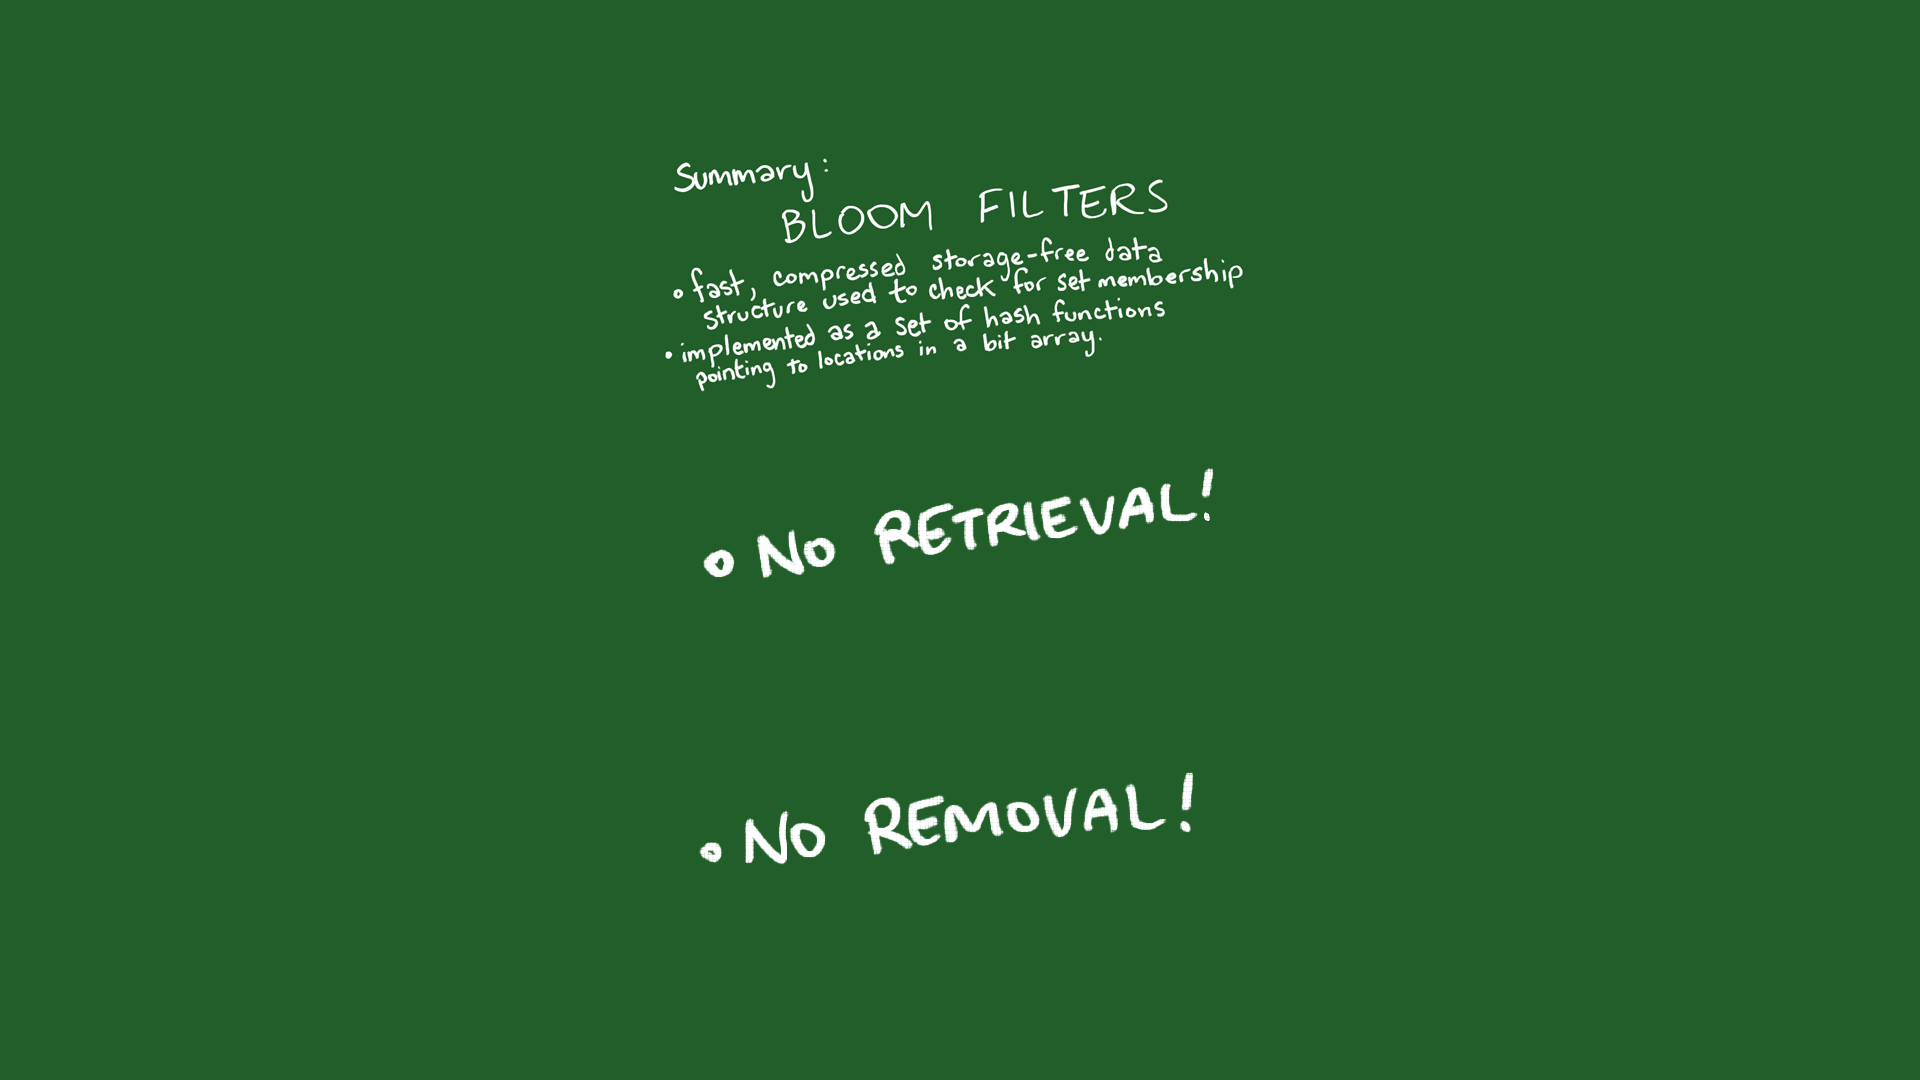 Summary:
BLOOM FILTERS
• fast, compressed storage-free data
structure used to check for set membership
• implemented as a set of hash functions
pointing to locations in a bit array.
• NO RETRIEVAL!
• NO REMOVAL!